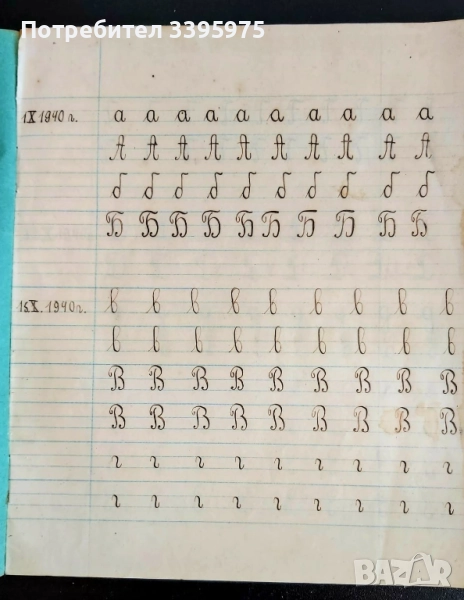 Потребител 3395975
1 X 1940 г. а а а а а а а а а а
А А А А А А А А А А
б б б б б б б б б б
Б Б Б Б Б Б Б Б Б Б
15 X. 1940 г. в в в в в в в в в
в в в в в в в в в
В В В В В В В В В
В В В В В В В В В
г г г г г г г г г
г г г г г г г г г
БАЗАР
bazar.bg